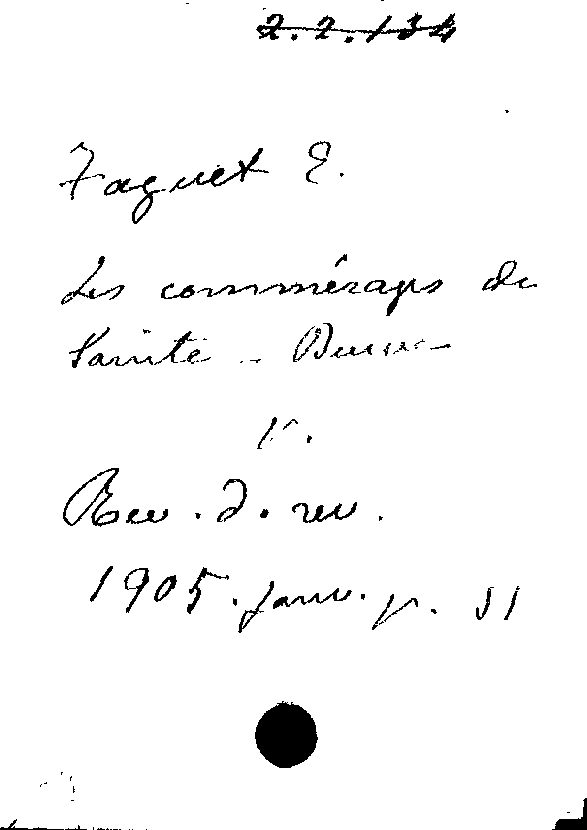 2.2.134
Faguet E.
Les commérages de
Sainte-Beuve
v.
Rev. d. rev.
1905. janv. p. 51